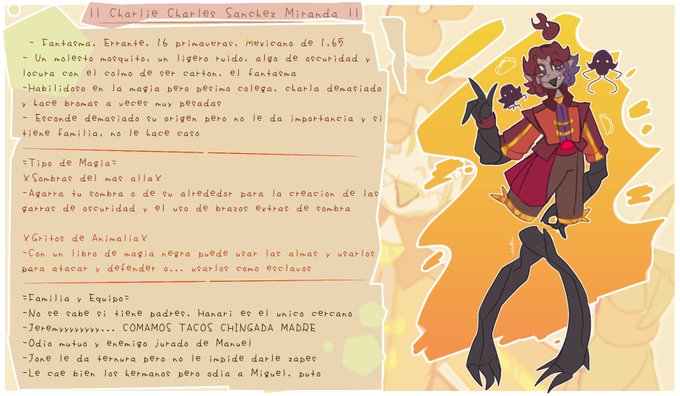 || Charlie Charles Sanchez Miranda ||
- Fantasma, Errante, 16 primaveras, Mexicano de 1.65
- Un molesto mosquito, un ligero ruido, algo de oscuridad y
locura con el colmo de ser carton, el fantasma
-Habilidoso en la magia pero pesimo colega, charla demasiado
y hace bromas a veces muy pesadas
- Esconde demasiado su origen pero no le da importancia y si
tiene familia, no le hace caso
=Tipo de Magia=
XSombras del mas allaX
-Agarra tu sombra o de su alrededor para la creacion de las
garras de oscuridad y el uso de brazos extras de sombra
XGritos de AnimaliaX
-Con un libro de magia negra puede usar las almas y usarlos
para atacar y defender o... usarlos como esclavos
=Familia y Equipo=
-No se sabe si tiene padres, Hanari es el unico cercano
-Jeremyyyyyyyy... COMAMOS TACOS CHINGADA MADRE
-Odio mutuo y enemigo jurado de Manuel
-Jone le da ternura pero no le impide darle zapes
-Le cae bien los hermanos pero odia a Miguel, puto